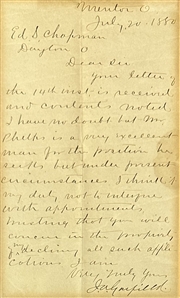 Mentor O
July, 20 - 1880
Ed S Chapman
Dayton O
Dear Sir
Your letter of
the 14th inst. is received
and contents noted
I have no doubt but Mr
Phelps is a very excellent
man for the position he
seeks but under present
circumstances I think it
my duty not to interfere
with appointments
trusting that you will
concur in the propriety
of my declining all such appli
cations I am
Very Truly Yours
J A Garfield